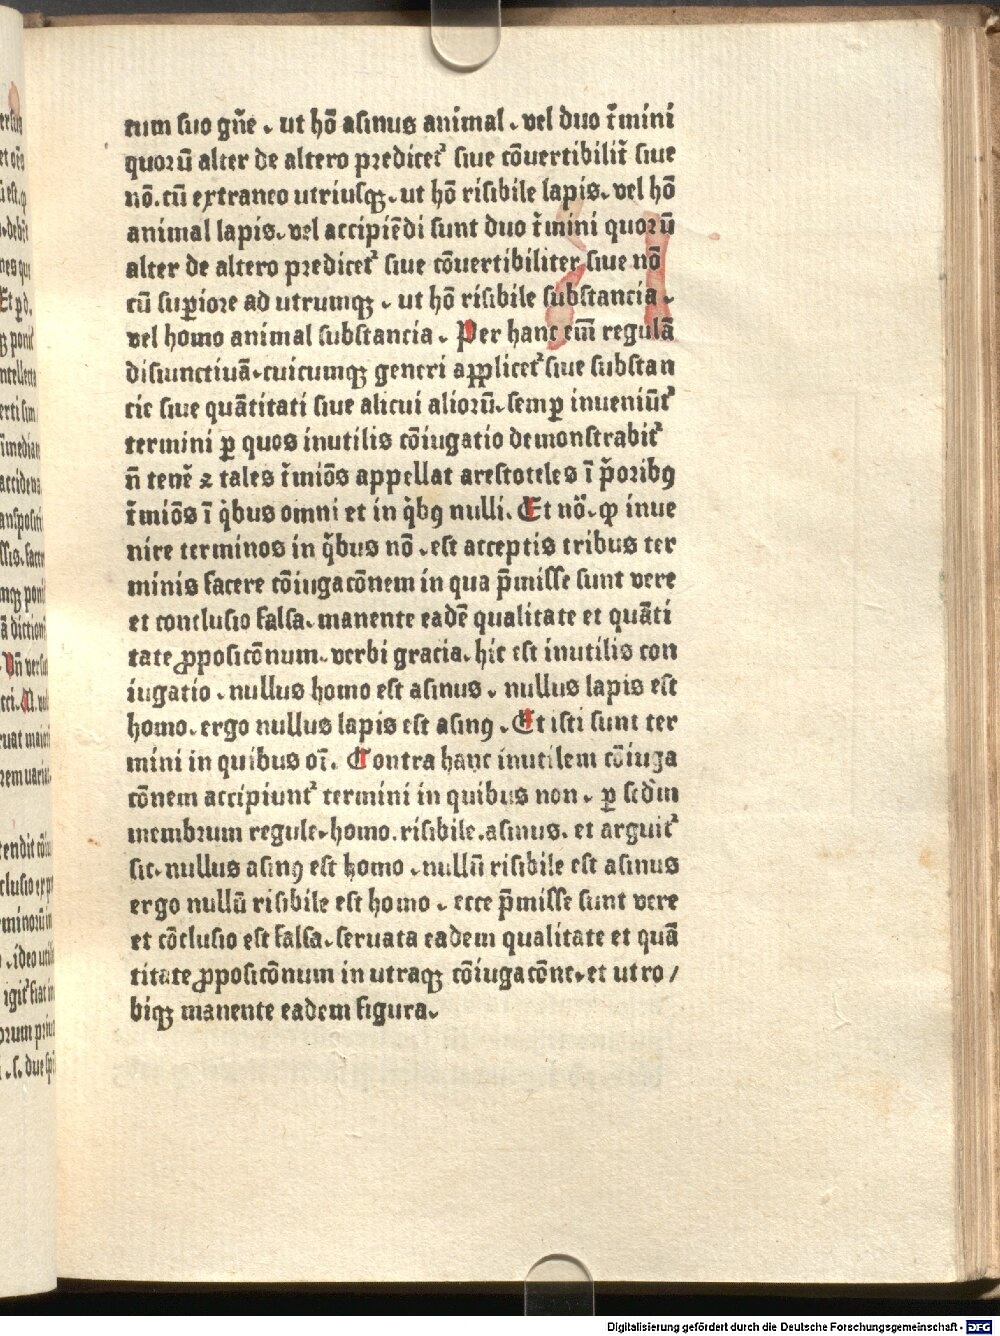 tum suo gñe . ut hō asinus animal . vel duo t̄mini
quorū alter de altero predicet᷑ siue cōuertibilit̄ siue
nō. cū extraneo utriusqꝫ . ut hō risibile lapis. vel hō
animal lapis. vel accipiēdi sunt duo t̄mini quorū
alter de altero predicet᷑ siue cōuertibiliter siue nō
cū suꝑiore ad utrumqꝫ . ut hō risibile substancia .
vel homo animal substancia . Per hanc eīm regulā
disiunctiuā. cuicumqꝫ generi applicet᷑ siue substan
cie siue quātitati siue alicui aliorū. semꝑ inueniūt᷑
termini ꝑ quos inutilis cōiugatio demonstrabit᷑
n̄ tenē ⁊ tales t̄miōs appellat arestoteles ī p̄oribꝯ
t̄miōs ī q̇bus omni et in q̇bꝯ nulli. Et nō. ꝙ inue
nire terminos in q̇bus nō . est acceptis tribus ter
minis facere cōiugacōnem in qua p̄misse sunt vere
et conclusio falsa. manente eadē qualitate et quāti
tate ꝓposicōnum. verbi gracia. hic est inutilis con
iugatio . nullus homo est asinus . nullus lapis est
homo. ergo nullus lapis est asinꝯ . Et isti sunt ter
mini in quibus oī. Contra hanc inutilem cōiuga
cōnem accipiunt᷑ termini in quibus non . ꝑ scd̄m
membrum regule. homo. risibile. asinus. et arguit᷑
sic. nullus asinꝯ est homo . nullū risibile est asinus
ergo nullū risibile est homo . ecce p̄misse sunt vere
et cōclusio est falsa. seruata eadem qualitate et quā
titate ꝓposicōnum in utraqꝫ cōiugacōne. et utro/
biqꝫ manente eadem figura.
Digitalisierung gefördert durch die Deutsche Forschungsgemeinschaft - DFG